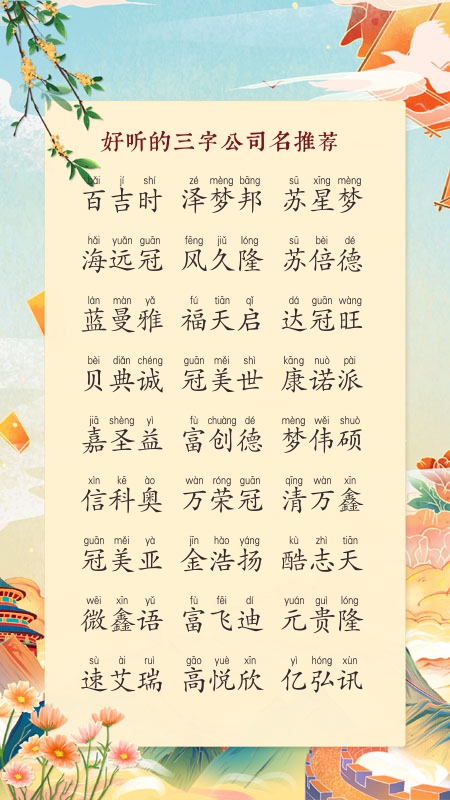 好听的三字公司名推荐
bǎi jí shí zé mèng bāng sū xīng mèng
百吉时 泽梦邦 苏星梦
hǎi yuǎn guān fēng jiǔ lóng sū bèi dé
海远冠 风久隆 苏倍德
lán màn yǎ fú tiān qǐ dá guān wàng
蓝曼雅 福天启 达冠旺
bèi diǎn chéng guān měi shì kāng nuò pài
贝典诚 冠美世 康诺派
jiā shèng yì fù chuàng dé mèng wěi shuò
嘉圣益 富创德 梦伟硕
xìn kē ào wàn róng guān qīng wàn xīn
信科奥 万荣冠 清万鑫
guān měi yà jīn hào yáng kù zhì tiān
冠美亚 金浩扬 酷志天
wēi xīn yǔ fù fēi dí yuán guì lóng
微鑫语 富飞迪 元贵隆
sù ài ruì gāo yuè xīn yì hóng xùn
速艾瑞 高悦欣 亿弘讯